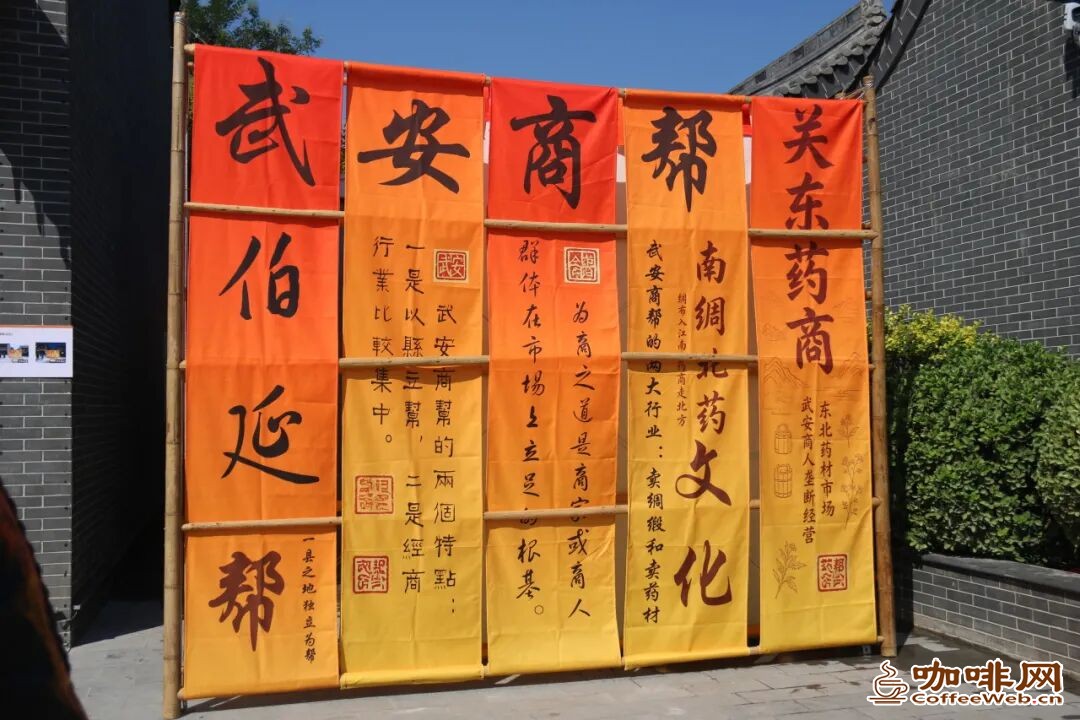 武安商帮
伯延帮
一县之地独立为帮
武安商幫的兩個特點：
一是以縣立幫，二是經商
行業比較集中。
为商之道是商家或商人
群体在市場上立足的根基。
南绸北药文化
绸布入江南 药商走北方
武安商帮的两大行业：卖绸缎和卖药材
关东药商
东北药材市场
武安商人垄断经营
咖啡网
CoffeeWeb.cn